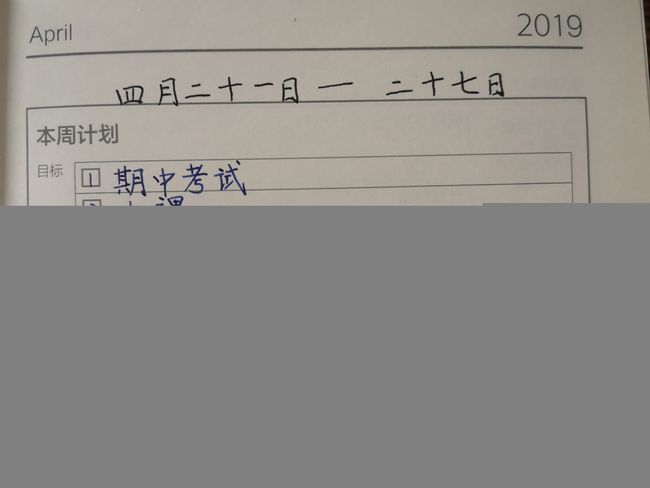 April 2019
四月二十一日 — 二十七日
本周计划
目标 1 期中考试